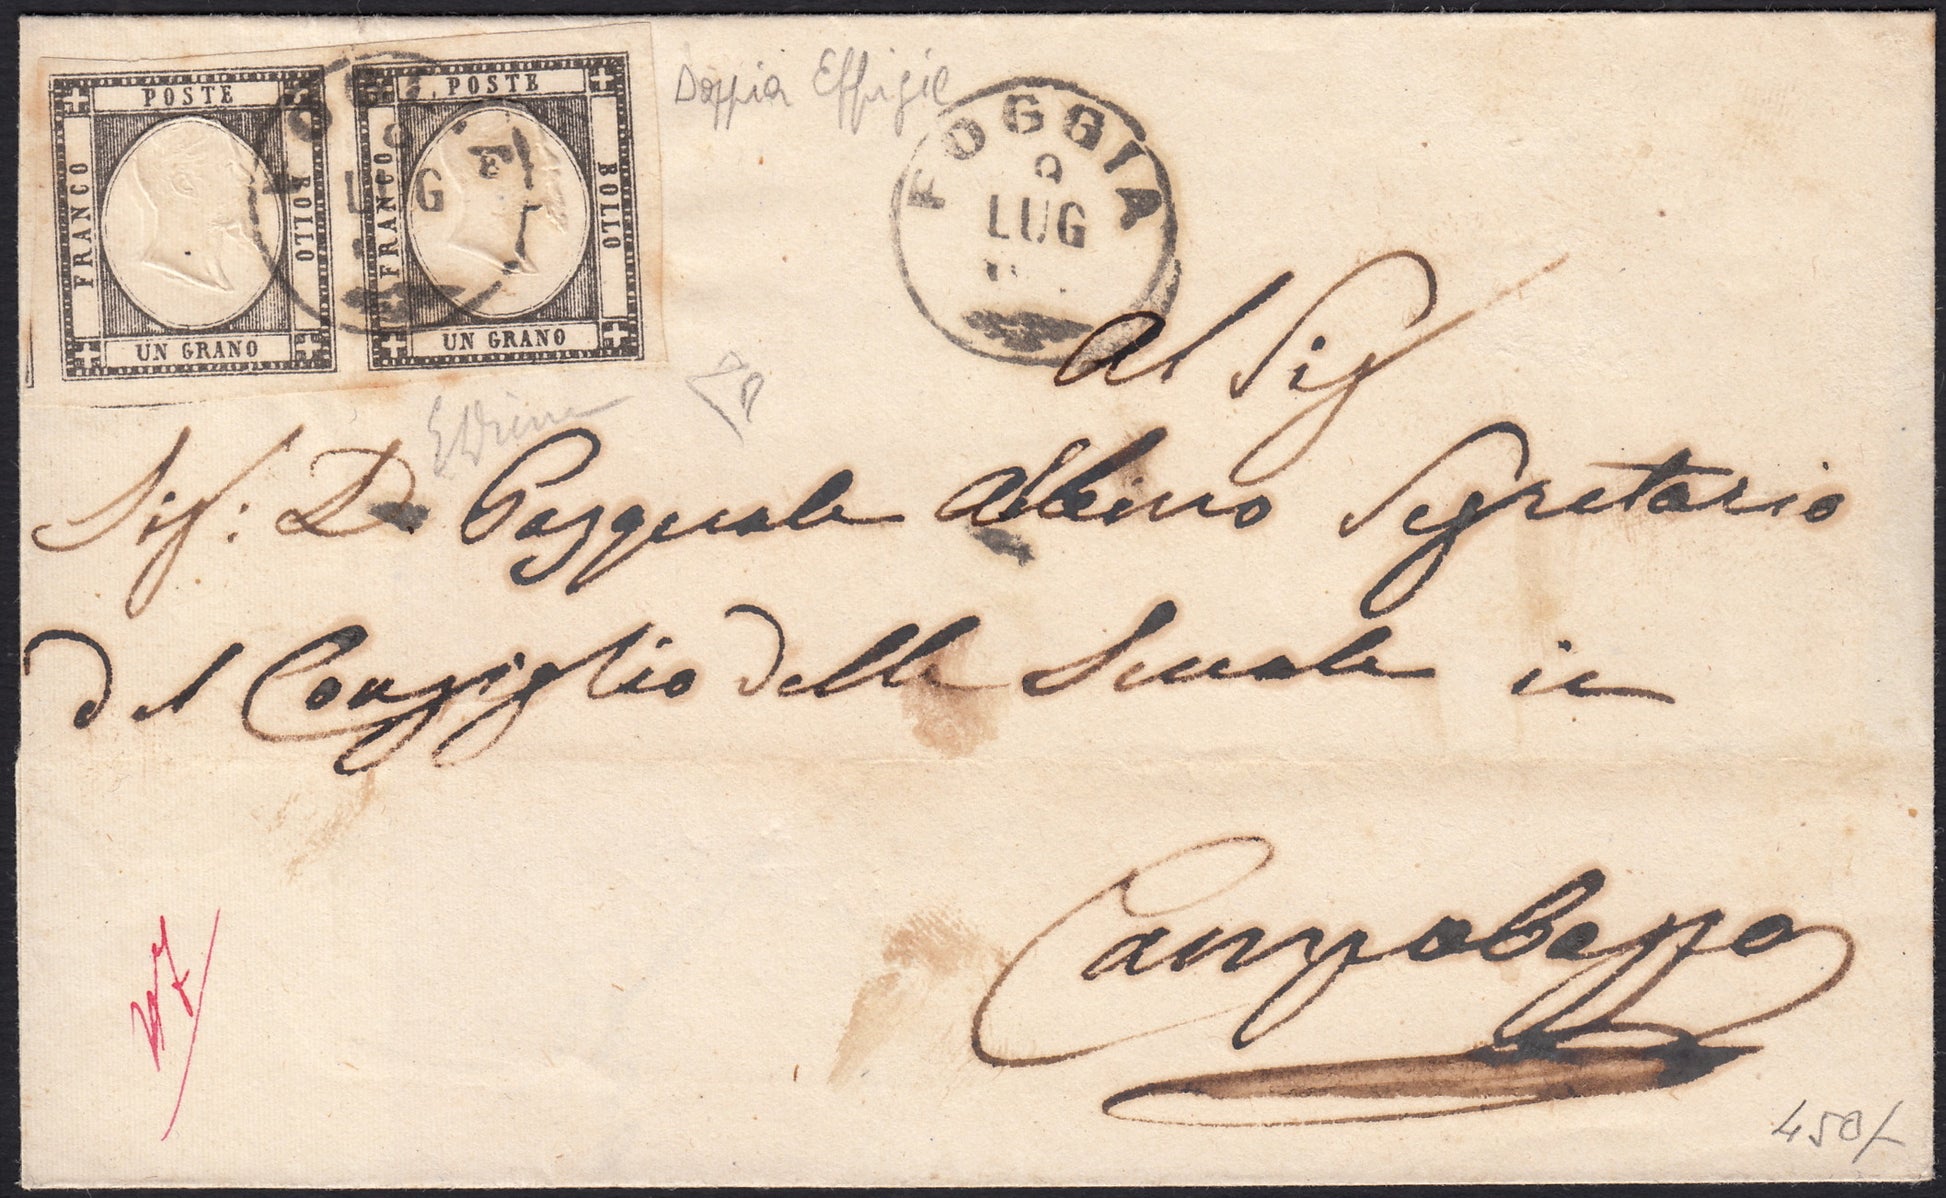 POSTE
FRANCO
BOLLO
UN GRANO
POSTE
FRANCO
BOLLO
UN GRANO
LUG
Doppia Effigie
FOGGIA
9
LUG
EDiena
Al Sig
Sig: D. Pasquale Albino Segretario
del Consiglio delle Scuole in
Campobasso
450/-